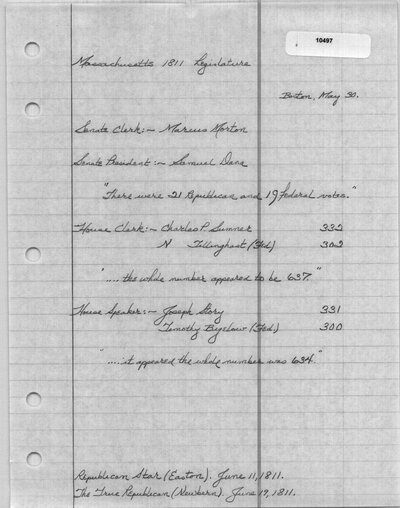 10497
Massachusetts 1811 Legislature
Boston, May 30.
Senate Clerk:- Marcus Morton
Senate President:- Samuel Dana
"There were 21 Republican and 19 Federal votes."
House Clerk:- Charles P. Sumner 332
N Tillinghast (Fed) 302
".... the whole number appeared to be 637"
House Speaker:- Joseph Story 331
Timothy Bigelow (Fed.) 300
".... it appeared the whole number was 634."
Republican Star (Easton). June 11, 1811.
The True Republican (Newbern). June 19, 1811.